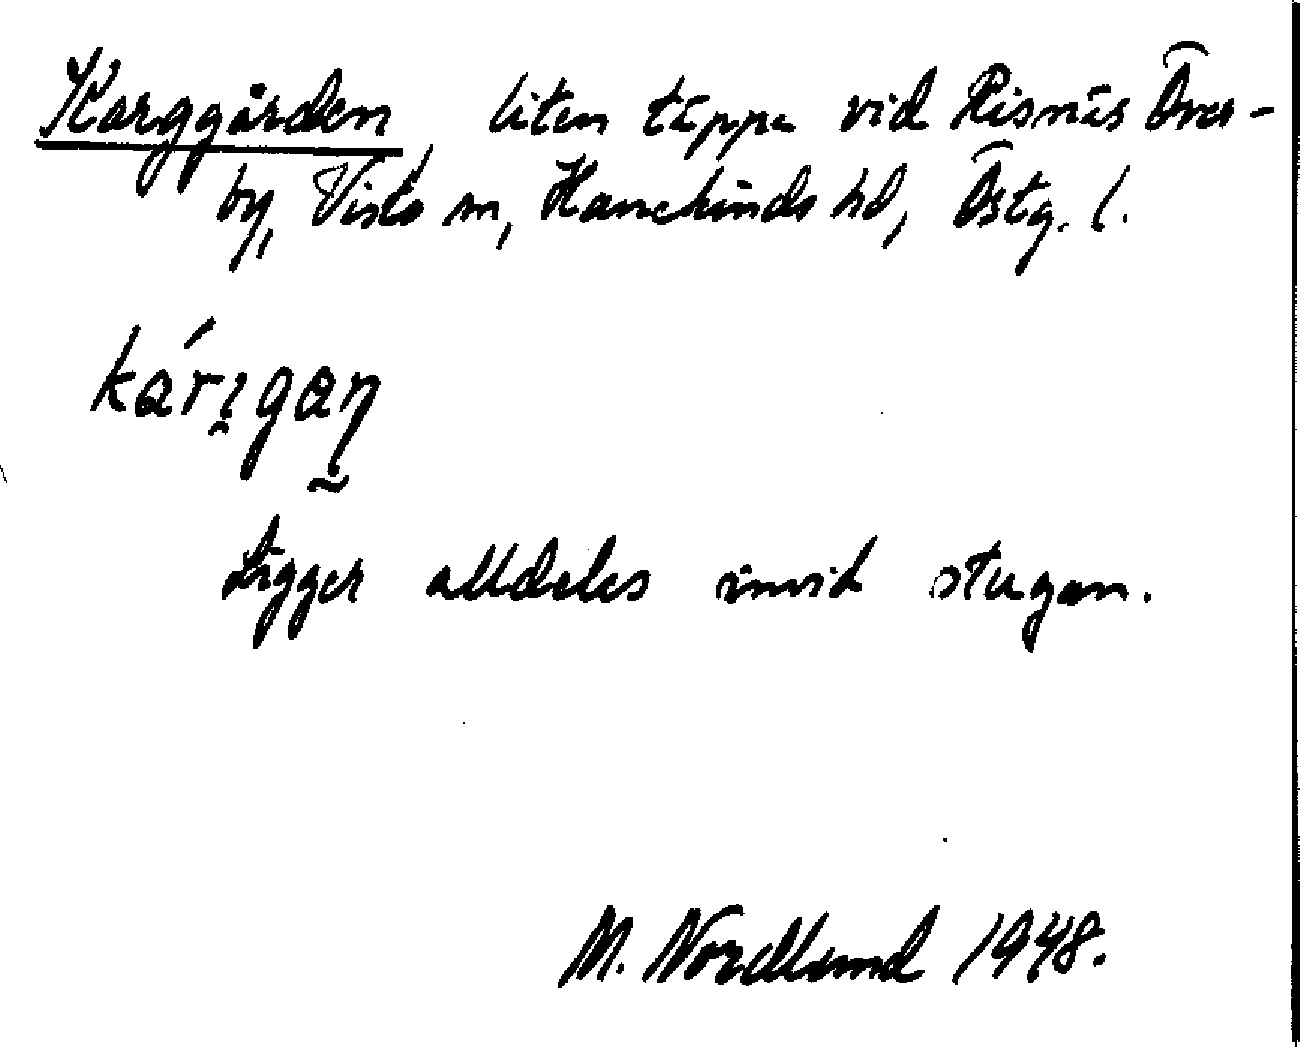 Karggården, liten täppa vid Risnäs Över-
by, Visto sn, Hanekinds hd, Östg. l.
kárı̯gaŋ̰
Ligger alldeles invid stugan.
M. Nordlund 1948.